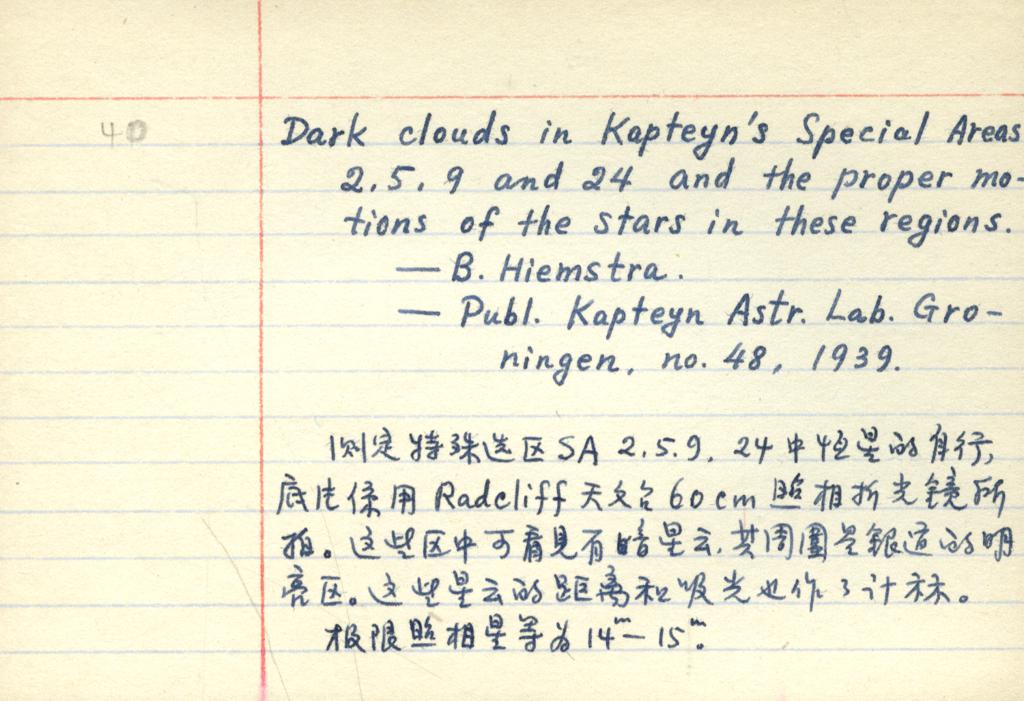 40
Dark clouds in Kapteyn's Special Areas
2.5.9 and 24 and the proper mo-
tions of the stars in these regions.
— B. Hiemstra.
— Publ. Kapteyn Astr. Lab. Gro-
ningen, no. 48, 1939.
测定特殊选区SA 2.5.9. 24中恒星的自行,
底片係用Radcliff天文台60cm照相折光镜所
拍。这些区中可看见有暗星云,其周圍是銀道的明
亮区。这些星云的距离和吸光也作了计标。
极限照相星等为14ᵐ—15ᵐ。